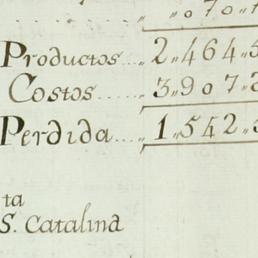 „ „ 0 7 0 „
Productos .... „ 2 „ 4 6 4 „
Costos .... „ 3 „ 9 0 7 „
Perdida .... „ 1 „ 5 4 2 „
ta
S. Catalina